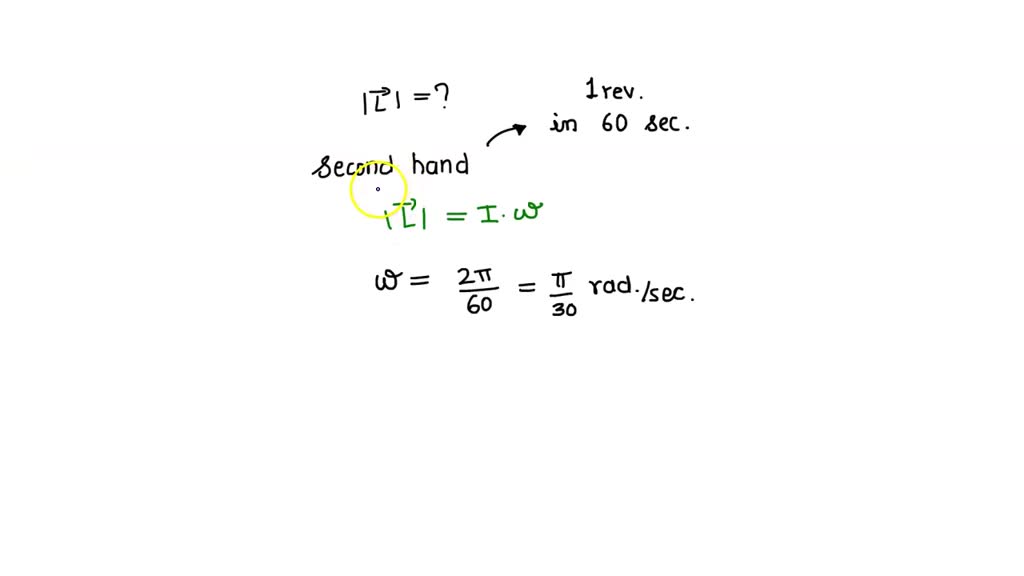 |L⃗| = ?
1 rev.
in 60 sec.
second hand
|L⃗| = I · ω
ω = 2π/60 = π/30 rad./sec.